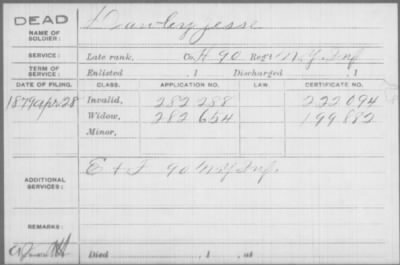 DEAD
NAME OF SOLDIER: Hawley, Jesse
SERVICE: Late rank, Co. H 90 Reg't N.Y. Inf
TERM OF SERVICE: Enlisted , 1 Discharged , 1
DATE OF FILING. CLASS. APPLICATION NO. LAW. CERTIFICATE NO.
1879 Apr. 28 Invalid, 282 288 222 094
Widow, 282 654 199 882
Minor,
ADDITIONAL SERVICES: E + I 90 N.Y. Inf.
REMARKS:
Died , 1 , at